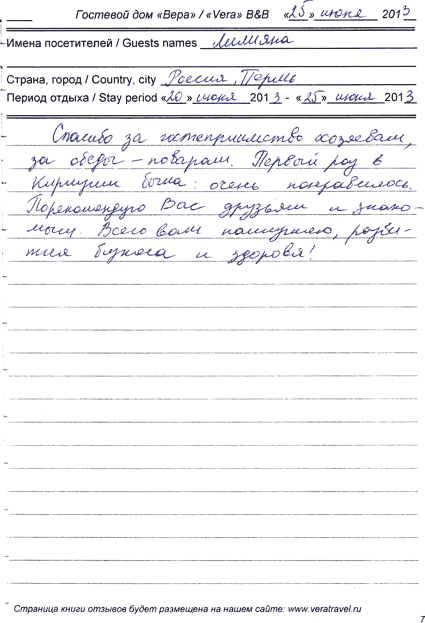 Гостевой дом «Вера» / «Vera» B&B «25» июня 2013
Имена посетителей / Guests names Лилияна
Страна, город / Country, city Россия, Пермь
Период отдыха / Stay period «20» июня 2013 - «25» июня 2013
Спасибо за гостеприимство хозяевам,
за обеды – поварам. Первый раз в
Киргизии была: очень понравилось.
Порекомендую Вас друзьям и знако-
мым. Всего вам наилучшего, разви-
тия бизнеса и здоровья!
Страница книги отзывов будет размещена на нашем сайте: www.veratravel.ru
7